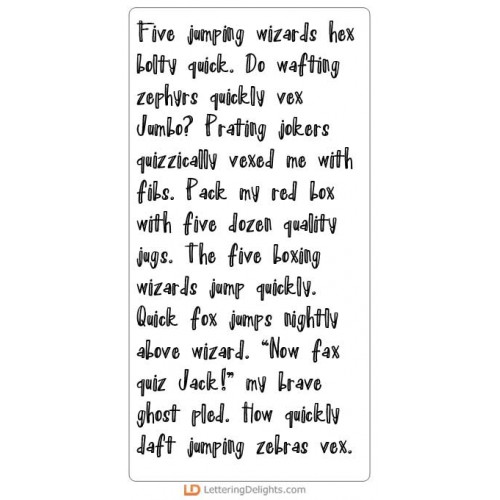 Five jumping wizards hex
bolty quick. Do wafting
zephyrs quickly vex
Jumbo? Prating jokers
quizzically vexed me with
fibs. Pack my red box
with five dozen quality
jugs. The five boxing
wizards jump quickly.
Quick fox jumps nightly
above wizard. "Now fax
quiz Jack!" my brave
ghost pled. How quickly
daft jumping zebras vex.
LD LetteringDelights.com